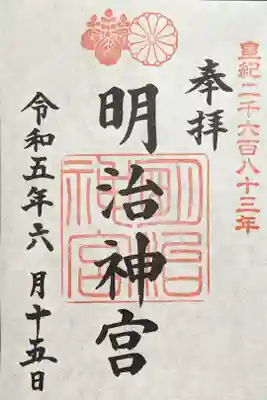 皇紀二千六百八十三年
奉拝
明治神宮
明治神宮
令和五年六月十五日